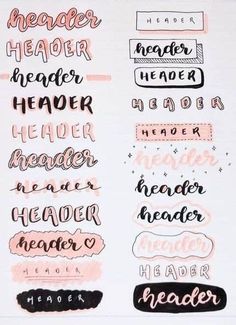 header
HEADER
header
HEADER
HEADER
header
header
HEADER
header
HEADER
HEADER
HEADER
header
HEADER
HEADER
HEADER
header
header
header
header
HEADER
header